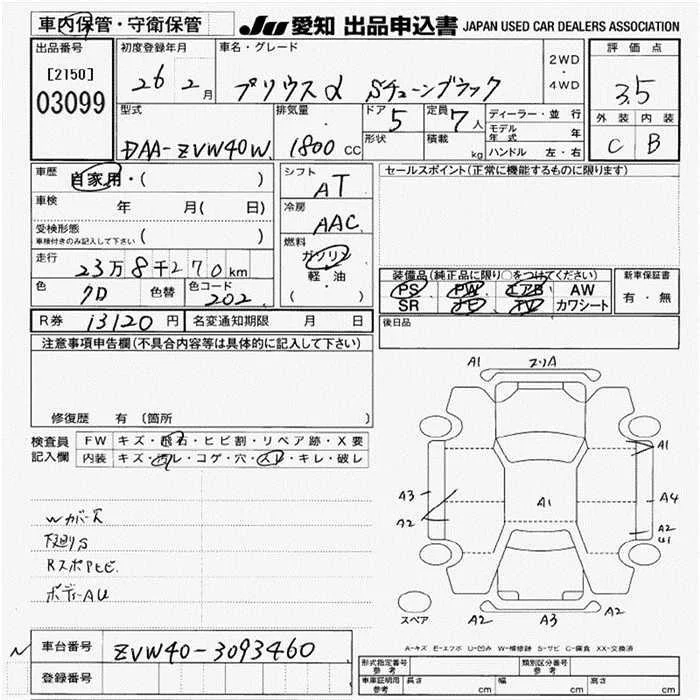 車内保管・守衛保管
JU 愛知 出品申込書 JAPAN USED CAR DEALERS ASSOCIATION
出品番号
[2150]
03099
初度登録年月
26 2月
車名・グレード
プリウスα Sチューンブラック
2WD
・
4WD
評価点
3.5
外装 内装
C B
型式
DAA-ZVW40W
排気量
1800 CC
ドア
5
形状
定員
7人
積載
kg
ディーラー・並行
モデル年式 年
ハンドル 左・右
車歴
自家用・( )
車検 年 月( 日)
受検形態
車検付きのみ記入して下さい ( )
走行
23万8千270km
色 クロ 色替 色コード 202
R券 13120円 名変通知期限 月 日
シフト
AT
冷房
AAC
燃料
ガソリン
軽・油
( )
セールスポイント(正常に機能するものに限ります)
装備品(純正品に限り○をつけてください)
PS PW エアB AW
SR ナビ TV カワシート
新車保証書
有・無
後日品
注意事項申告欄(不具合内容等は具体的に記入して下さい)
修復歴 有 〔箇所
検査員
記入欄
FW キズ・飛石・ヒビ割・リペア跡・X要
内装 キズ・汚レ・コゲ・穴・スレ・キレ・破レ
Wカバース
下廻りS
RスポPヒビ
ボディーAU
A1
A1
A3
A2
A1
A4
A2
U1
スペア
A2
A3
A2
A-キズ E-エクボ U-凹み W-補修跡 S-サビ C-腐食 XX-交換済
車台番号 ZVW40-3093460
登録番号
形式指定番号
参考
類別区分番号
参考
車庫証明用
参考
長さ cm 幅 cm 高さ cm